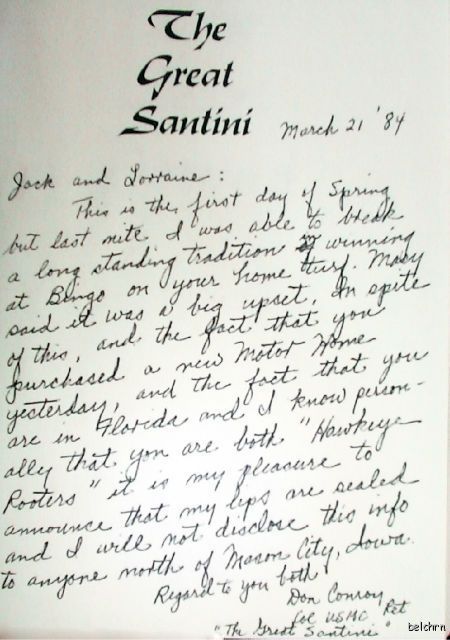 The
Great
Santini
March 21 '84
Jack and Lorraine:
This is the first day of Spring
but last nite I was able to break
a long standing tradition by winning
at Bingo on your home turf. Mary
said it was a big upset. In spite
of this, and the fact that you
purchased a new Motor Home
yesterday, and the fact that you
are in Florida and I know person-
ally that you are both "Hawkeye
Rooters" it is my pleasure to
announce that my lips are sealed
and I will not disclose this info
to anyone north of Mason City, Iowa.
Regard to you both
Don Conroy
Col USMC Ret
"The Great Santini"
belchrn